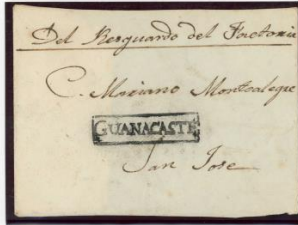 Del Resguardo del Factoria
C. Mariano Montealegre
GUANACASTE
San Jose